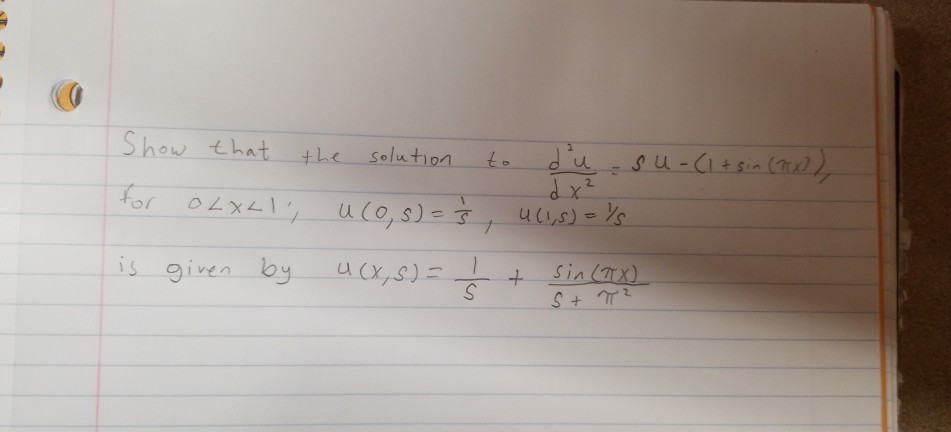 Show that the solution to d²u/dx² = su - (1 + sin(πx)),
for 0<x<1; u(0,s) = 1/s, u(1,s) = 1/s
is given by u(x,s) = 1/s + sin(πx)/(s + π²)